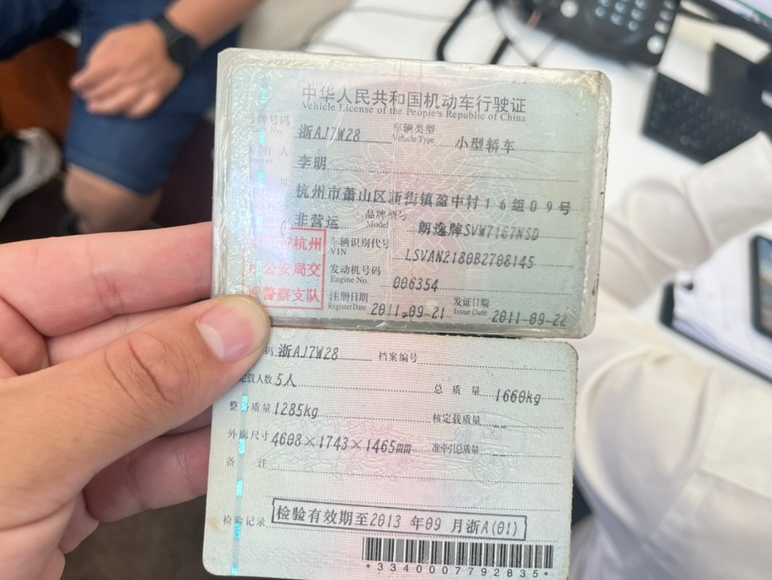 中华人民共和国机动车行驶证
Vehicle License of the People's Republic of China
号牌号码 浙AJ7W28 车辆类型 小型轿车
Plate No. Vehicle Type
所有人 李明
Owner
住址 杭州市萧山区新街镇盈中村16组09号
非营运 品牌型号 朗逸牌SVW7167NSD
Model
杭州 车辆识别代号 LSVAN2180B2708145
VIN
公安局交 发动机号码 006354
Engine No.
警察支队 注册日期 2011-09-21 发证日期 2011-09-22
Register Date Issue Date
码 浙AJ7W28 档案编号
载人数 5人 总质量 1660kg
整备质量 1285kg 核定载质量 --
外廓尺寸 4608×1743×1465mm 准牵引总质量 --
备注
检验记录 检验有效期至2013年09月浙A(01)
*3340007792835*